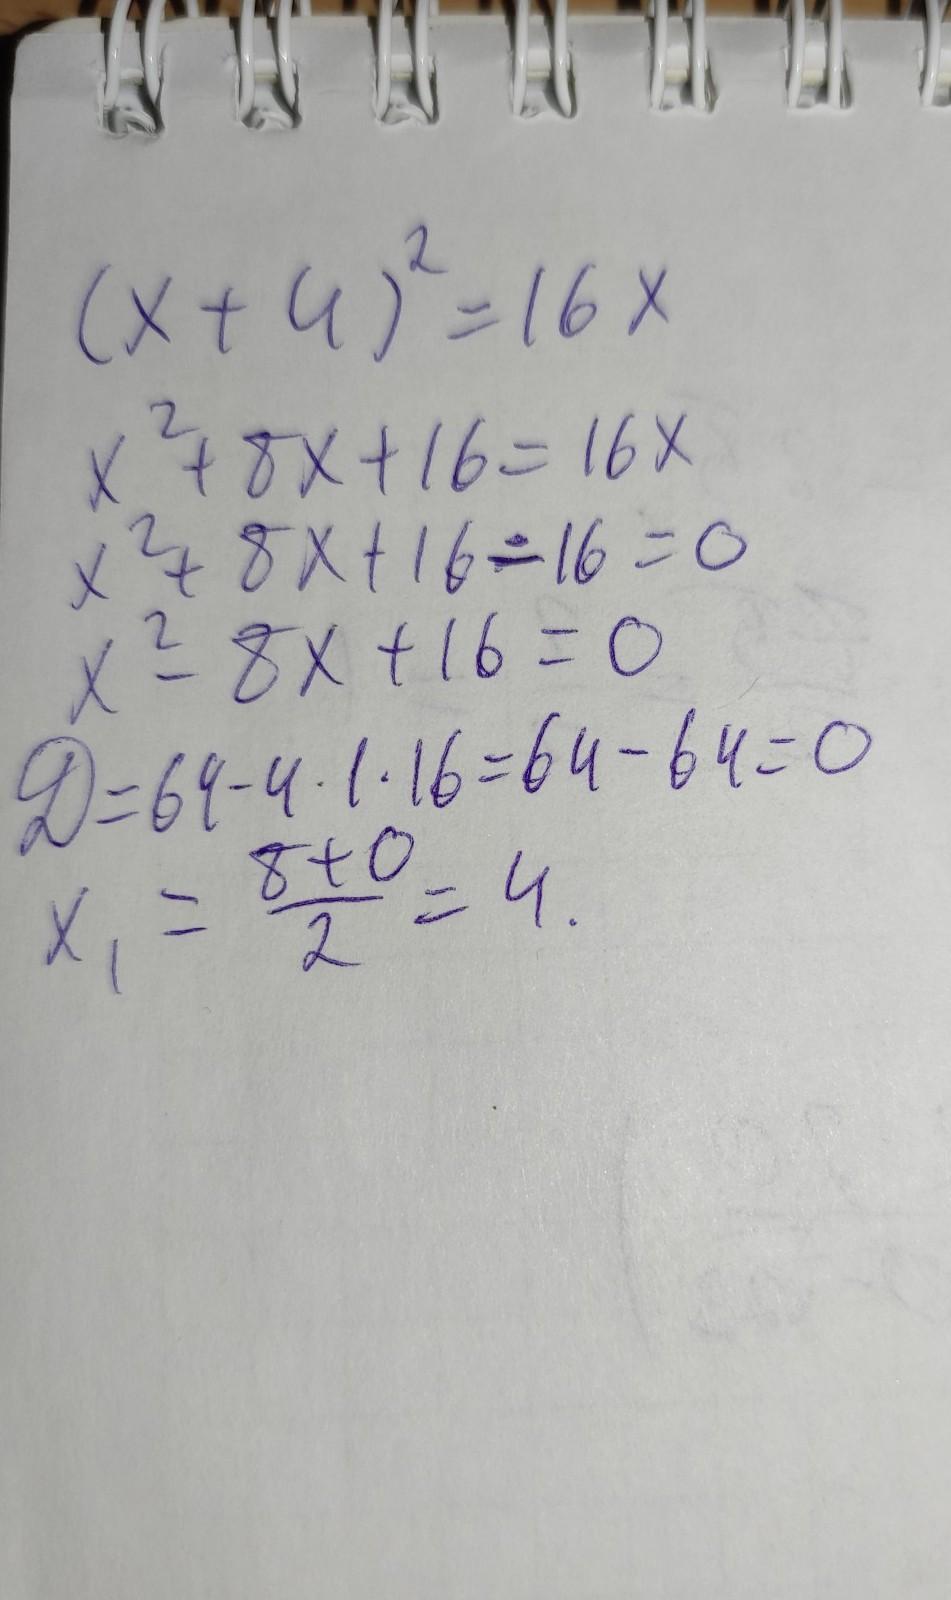 (x + 4)² = 16x
x² + 8x + 16 = 16x
x² + 8x + 16 - 16 = 0
x² - 8x + 16 = 0
D = 64 - 4 · 1 · 16 = 64 - 64 = 0
x₁ = (8 + 0)/2 = 4.